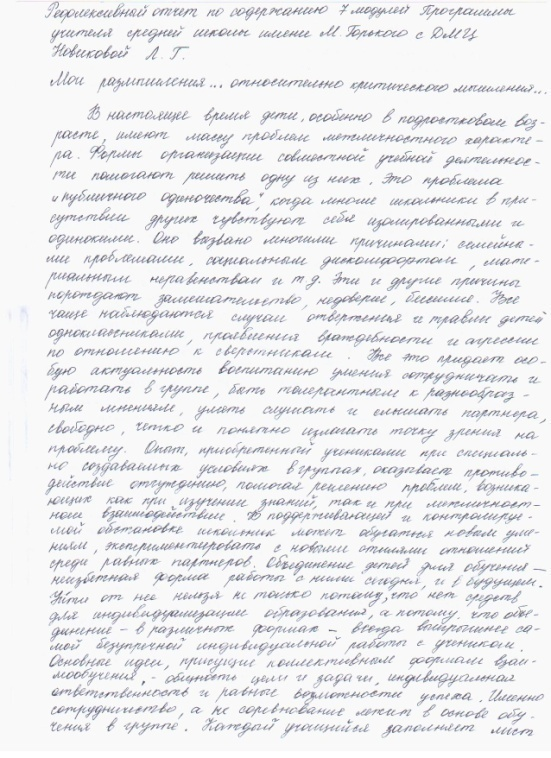 Рефлексивный отчет по содержанию 7 модулей Программы
учителя средней школы имени М. Горького с ДМЦ
Новиковой Л. Г.
Мои размышления... относительно критического мышления...
В настоящее время дети, особенно в подростковом воз-
расте, имеют массу проблем межличностного характе-
ра. Формы организации совместной учебной деятельнос-
ти помогают решить одну из них. Это проблема
„публичного одиночества", когда многие школьники в при-
сутствии других чувствуют себя изолированными и
одинокими. Оно вызвано многими причинами: семейны-
ми проблемами, социальным дискомфортом, мате-
риальным неравенством и т д. Эти и другие причины
порождают замешательство, недоверие, бессилие. Все
чаще наблюдаются случаи отвержения и травли детей
одноклассниками, проявления враждебности и агрессии
по отношению к сверстникам. Все это придает осо-
бую актуальность воспитанию умения сотрудничать и
работать в группе, быть толерантным к разнообраз-
ным мнениям, уметь слушать и слышать партнера,
свободно, четко и понятно излагать точку зрения на
проблему. Опыт, приобретенный учениками при специаль-
но создаваемых условиях в группах, оказывает противо-
действие отчуждению, помогая решению проблем, возника-
ющих как при изучении знаний, так и при межличност-
ном взаимодействии. В поддерживающей и контролируе-
мой обстановке школьник может обучаться новым уме-
ниям, экспериментировать с новыми стилями отношений
среди равных партнеров. Объединение детей для обучения –
неизбежная форма работы с ними сегодня, и в будущем.
Уйти от нее нельзя не только потому, что нет средств
для индивидуализации образования, а потому что объе-
динение – в различных формах – всегда выигрышнее са-
мой безупречной индивидуальной работы с учеником.
Основные идеи, присущие коллективным формам взаи-
мообучения, - общность цели и задачи, индивидуальная
ответственность и равные возможности успеха. Именно
сотрудничество, а не соревнование лежит в основе обу-
чения в группе. Каждый учащийся заполняет лист